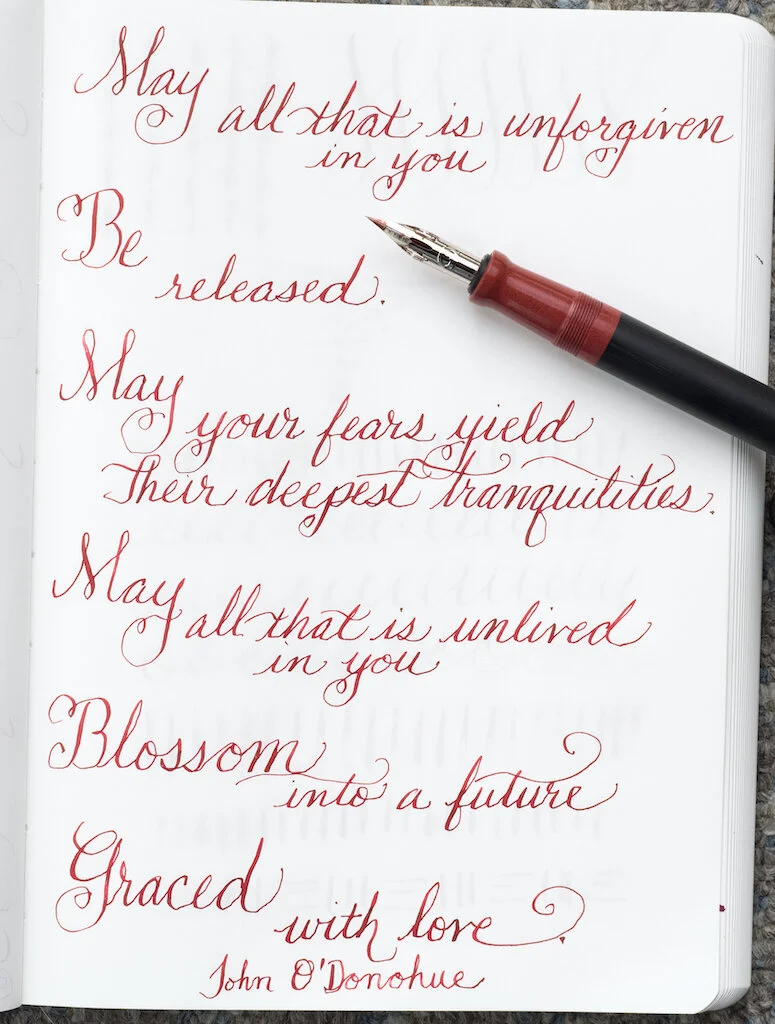 May
all that is unforgiven
in you
Be
released.
May
your fears yield
Their deepest tranquilities.
May
all that is unlived
in you
Blossom
into a future
Graced
with love.
John O'Donohue